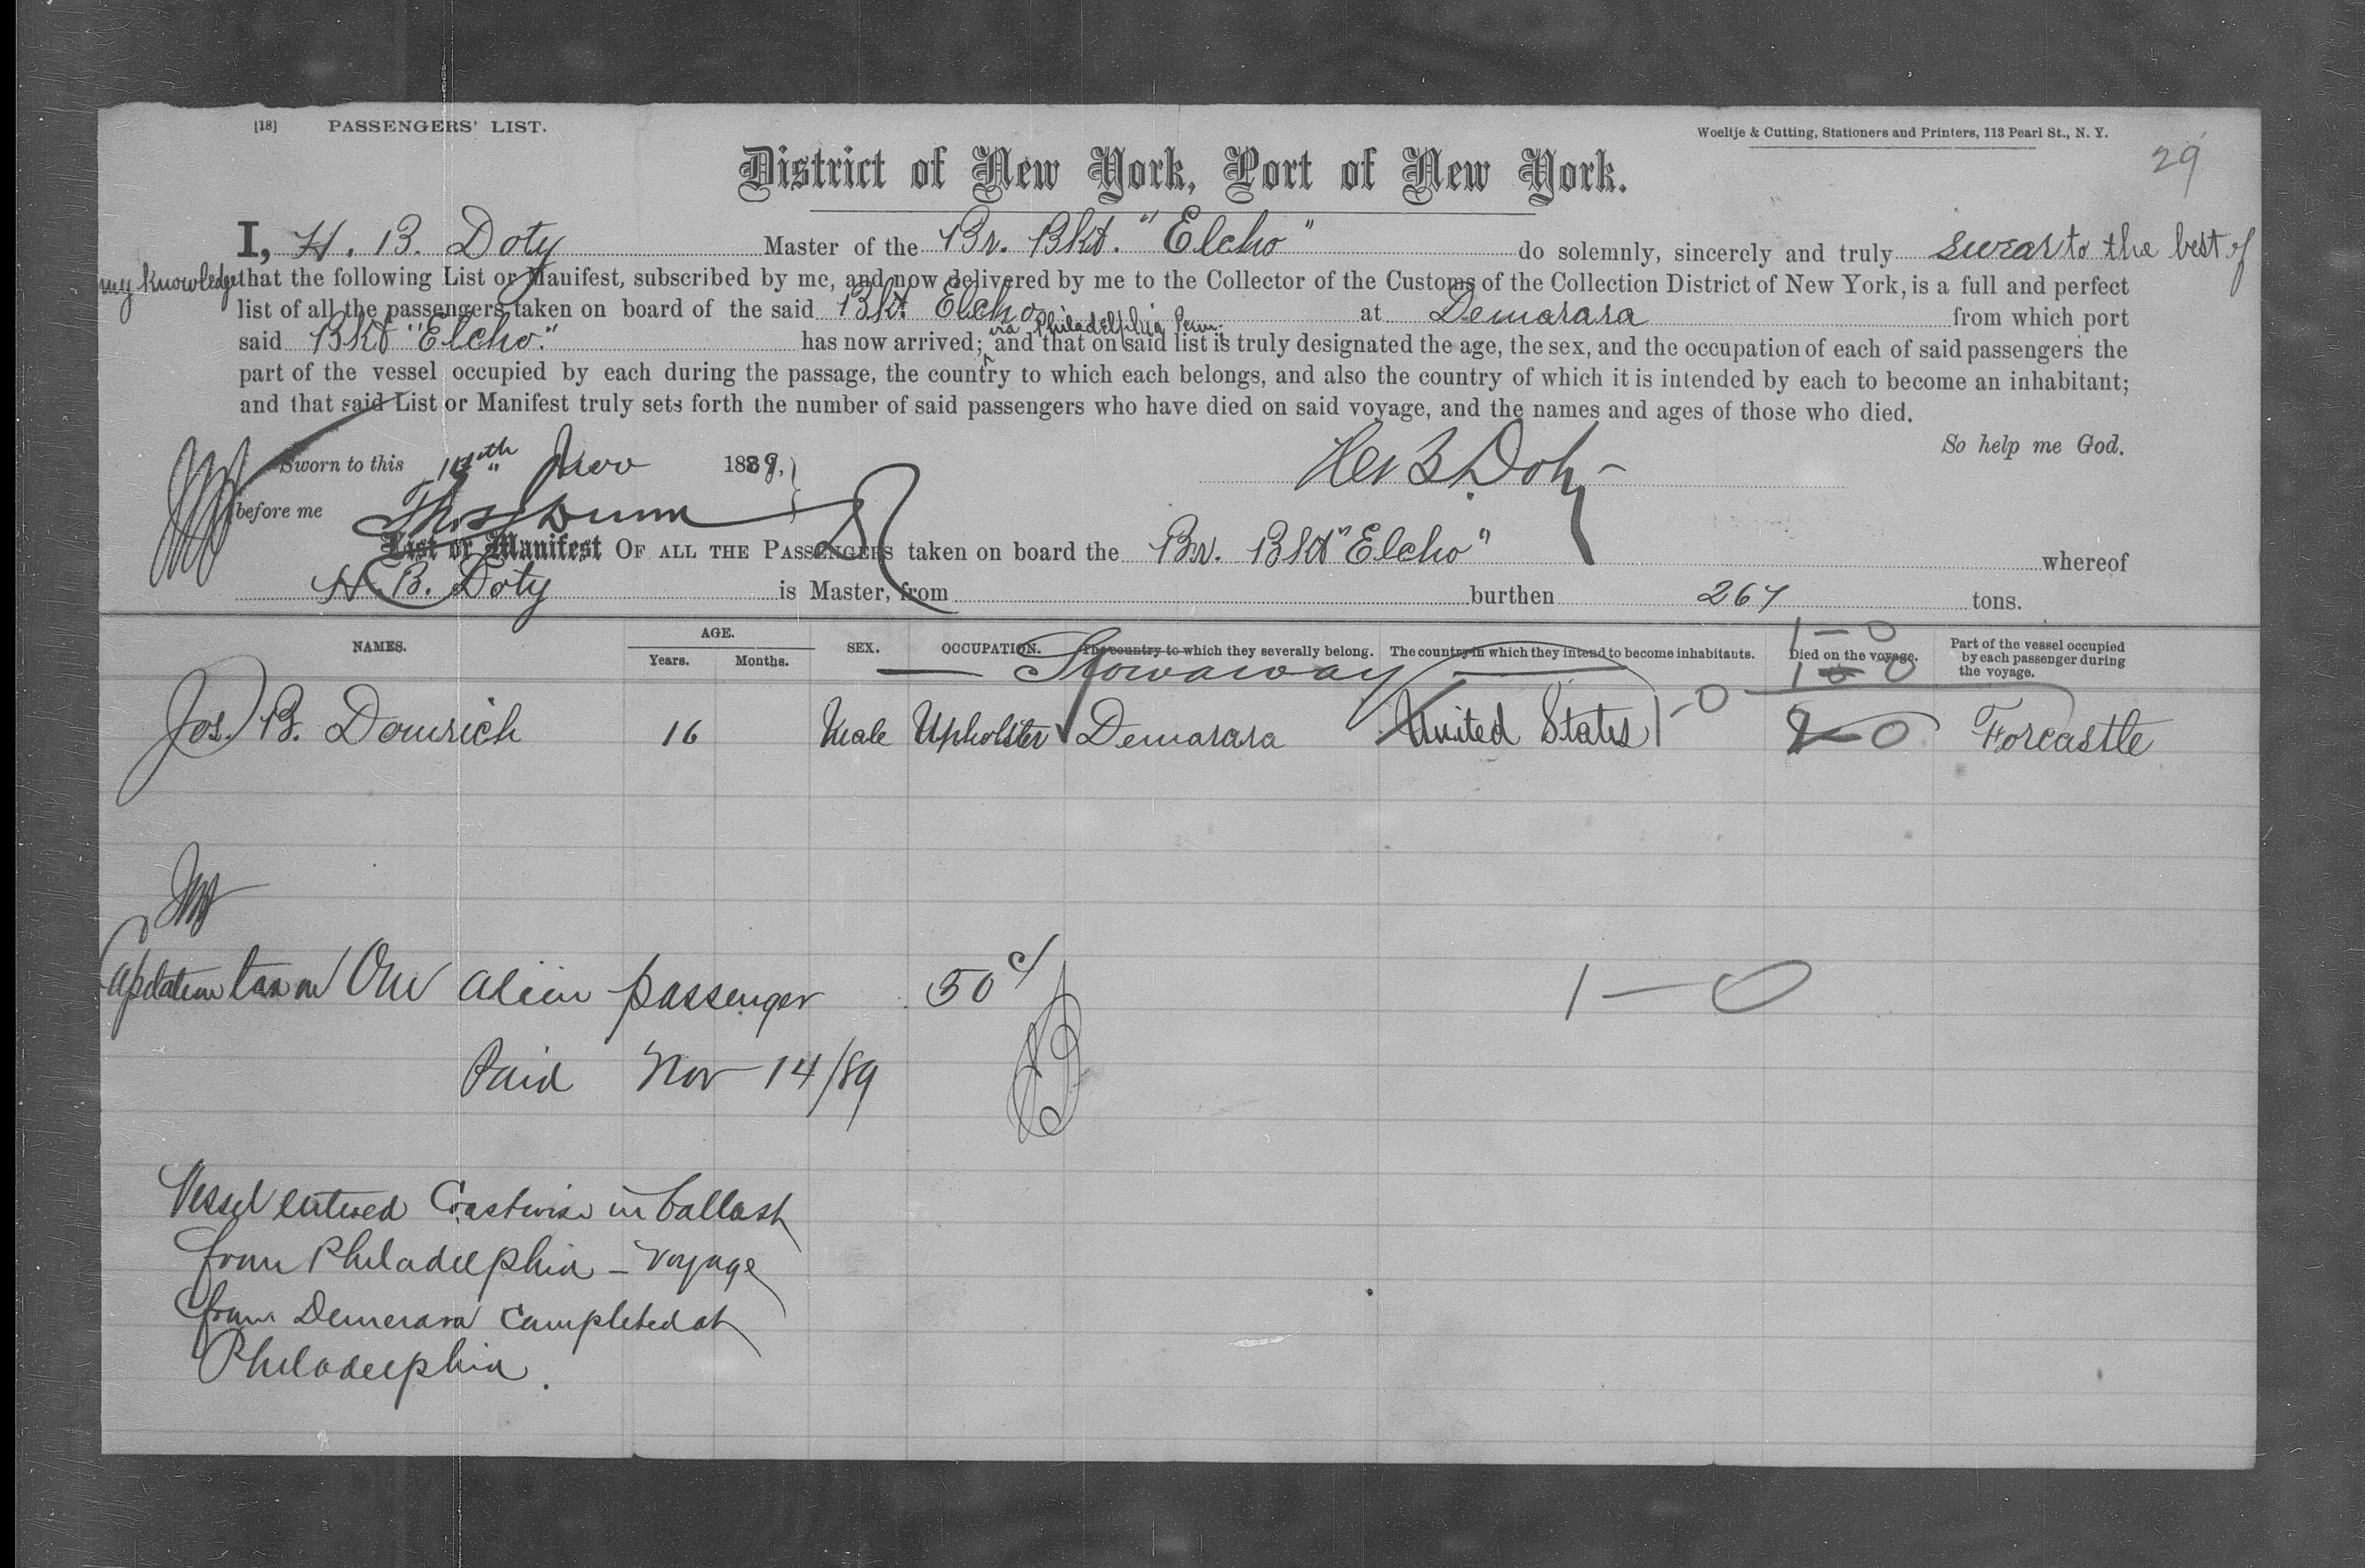 [18] PASSENGERS' LIST.
Woeltje & Cutting, Stationers and Printers, 113 Pearl St., N. Y.
29
District of New York, Port of New York.
I, H. B. Doty Master of the Br. Bkt. "Elcho" do solemnly, sincerely and truly swear to the best of
my knowledge that the following List or Manifest, subscribed by me, and now delivered by me to the Collector of the Customs of the Collection District of New York, is a full and perfect
list of all the passengers taken on board of the said Bkt Elcho at Demarara from which port
via Philadelphia Penn.
said Bkt "Elcho." has now arrived; and that on said list is truly designated the age, the sex, and the occupation of each of said passengers the
part of the vessel occupied by each during the passage, the country to which each belongs, and also the country of which it is intended by each to become an inhabitant;
and that said List or Manifest truly sets forth the number of said passengers who have died on said voyage, and the names and ages of those who died.
So help me God.
Sworn to this 14th Nov 1889,
before me
List or Manifest OF ALL THE PASSENGERS taken on board the Br. Bkt "Elcho" whereof
H. B. Doty is Master, from burthen 267 tons.
NAMES. AGE. Years. Months. SEX. OCCUPATION. The country to which they severally belong. The country in which they intend to become inhabitants. Died on the voyage. Part of the vessel occupied by each passenger during the voyage.
1-0
1-0 0
Stowaway
Jos. B. Domrich 16 Male Upholster Demarara United States 1-0 Forcastle
Capitation tax on One alien passenger 50 c/ 1 — 0
Paid Nov 14/89
Vessel entered Coastwise in ballast
from Philadelphia - voyage
from Demerara completed at
Philadelphia.